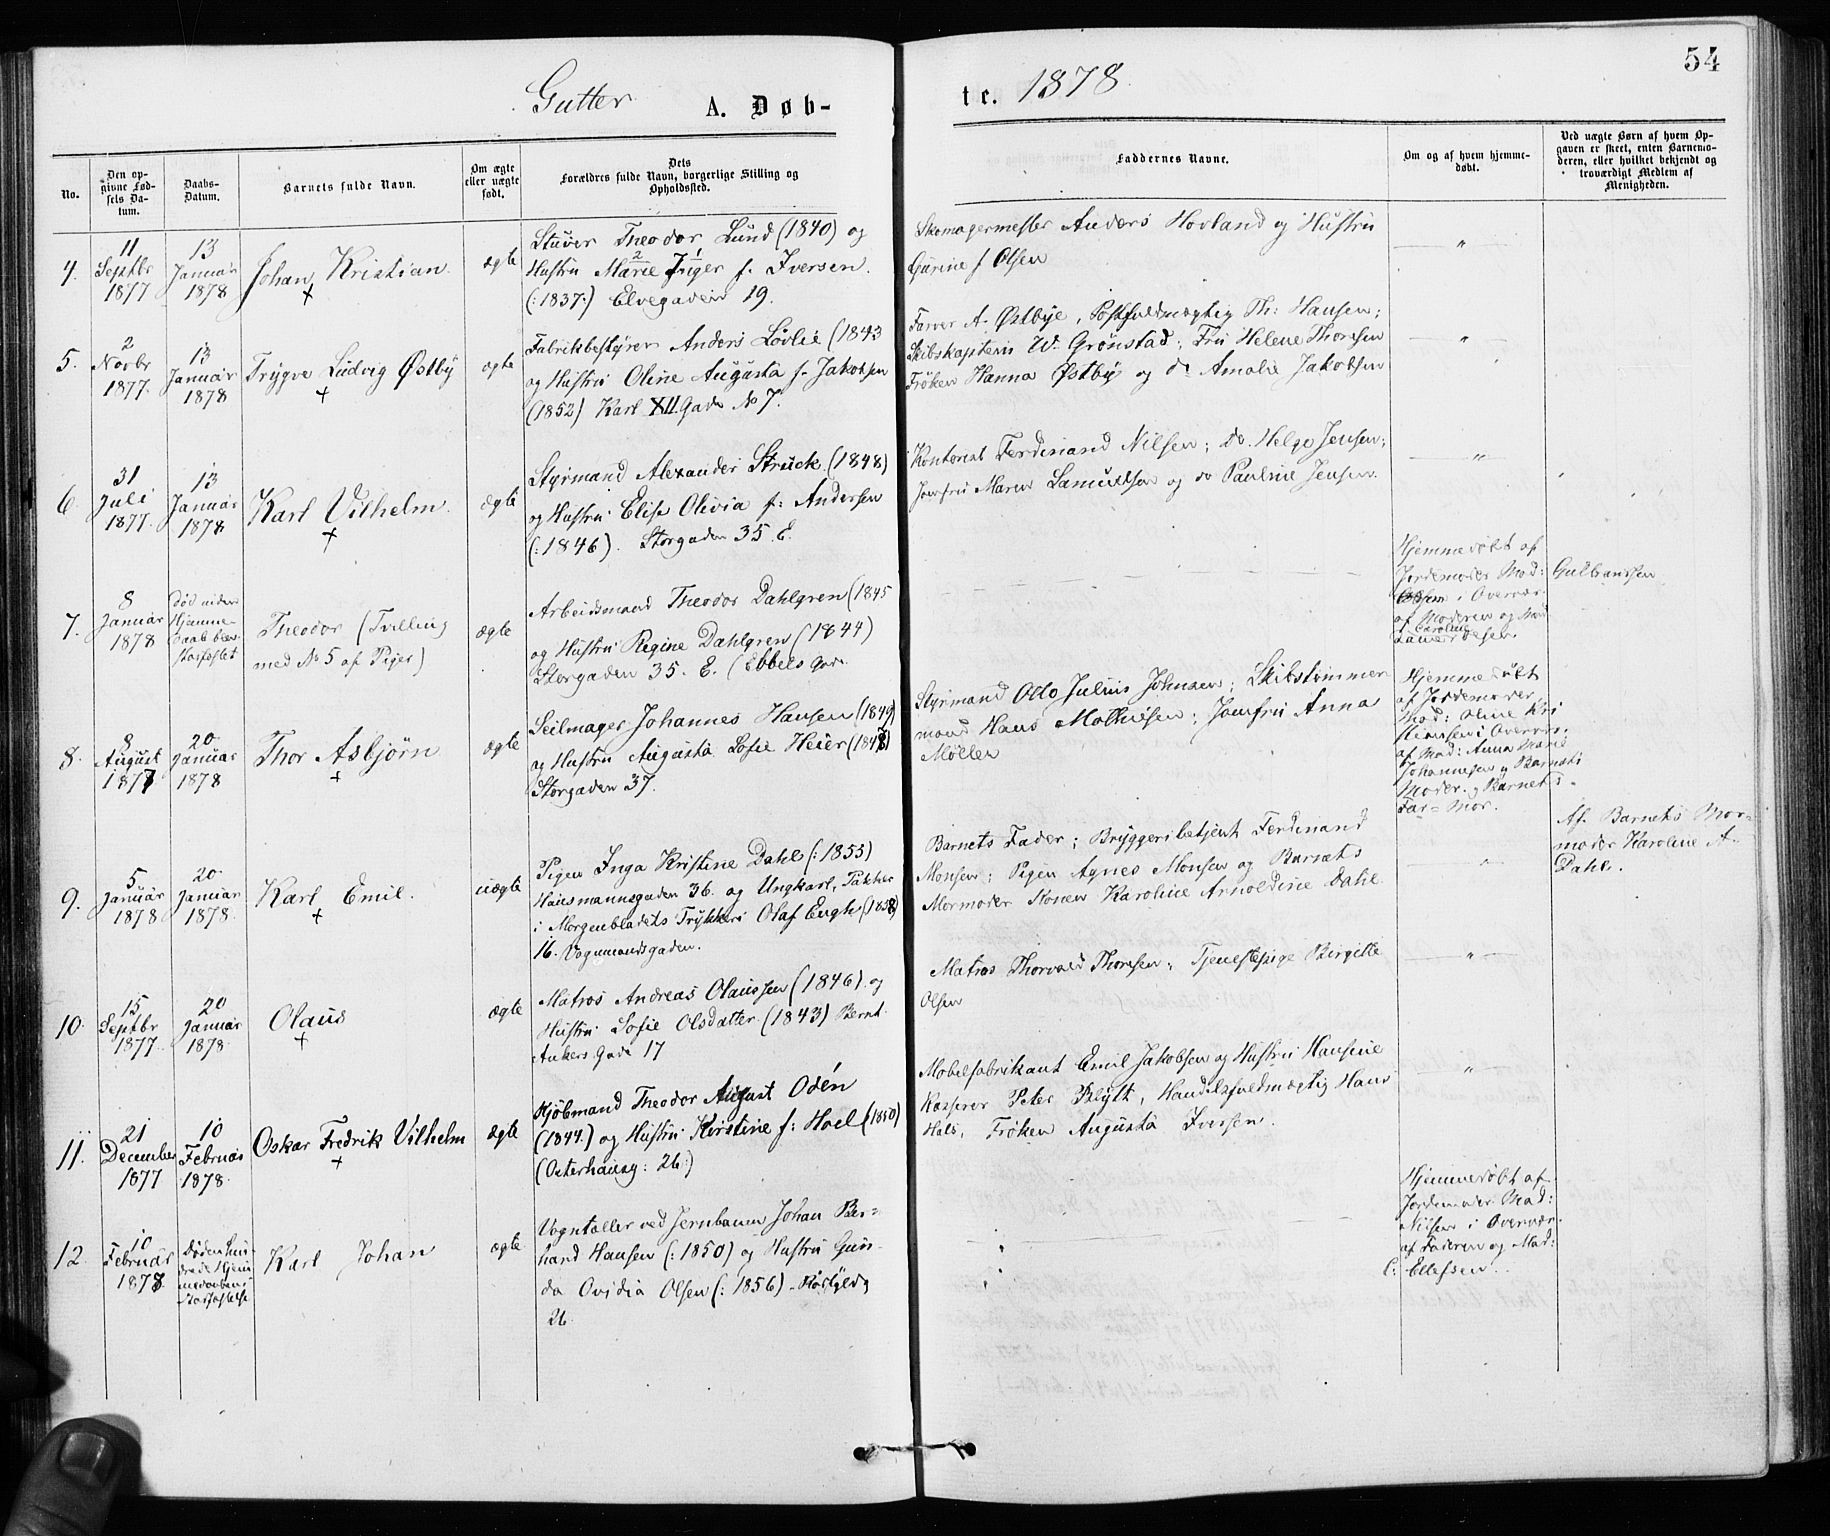 54
Gutter A. Døb-
te. 1878.
No.
Den op-
givne Fød-
sels Da-
tum.
Daabs-
Datum.
Barnets fulde Navn.
Om ægte
eller uægte
født.
Dets
Forældres fulde Navn, borgerlige Stilling og
Opholdssted.
Faddernes Navne.
Om og af hvem hjemme-
døbt.
Ved uægte Børn af hvem Op-
gaven er skeet, enten Barnemo-
deren, eller hvilket bekjendt og
troværdigt Medlem af
Menigheden.
4.
11
Septbr
1877
13
Januar
1878
Johan Kristian
+
ægte
Stuver Theodor Lund (1840) og
Hustru Marie Inger f. Iversen.
(:1837:) Elvegaden 19.
Skomagermester Anders Hovland og Hustru
Gurine f Olsen
"
5.
2
Novbr
1877.
13
Januar
1878
Trygve Ludvig Østby
+
ægte
Fabrikbestyrer Anders Løvlie (1843
og Hustru Oline Augusta f. Jakobsen
(1852) Karl XII Gade No 7.
Farver A. Østbye, Postfuldmægtig Th: Hansen;
Skibskaptein W. Grønstad; Fru Helene Thoresen
Frøken Hanna Østby og do Amalie Jakobsen
"
6.
31
Juli
1877.
13
Januar
1878
Karl Vilhelm.
+
ægte
Styrmand Alexander Struck (1848)
og Hustru Elise Olivia f: Andersen
(:1846). Storgaden 35. E.
Kontorist Ferdinand Nilsen; do. Helge Jensen;
Jomfru Maren Samuelsen og do Pauline Jensen.
"
7.
8
Januar
1878
død uden
Hjemme-
daab blev
stadfæstet
Theodor (Tvilling
med No 5 af Piger)
ægte
Arbeidsmand Theodor Dahlgren (1845
og Hustru Regine Dahlgren (1844)
Storgaden 35. E. (Ebbels Gade
Hjemmedøbt af
Jordemoder Mad:
Gulbranssen
i Overvær
af Moderen og Mad
Caroline
8.
8
August
1877
20
Januar
1878
Thor Asbjørn
+
ægte
Seilmager Johannes Hansen (1849)
og Hustru Augusta Sofie Heier (1848)
Storgaden 37.
Styrmand Otto Julius Johnsen; Skibstømmer
mand Hans Mathisen; Jomfru Anna
Møller
Hjemmedøbt
af Jordemoder
Mad: Oline Kri
stiansen i Overvær
af Mad: Anna Marie
Johannesen og Barnets
Moder. og Barnets
Far-Mor.
9.
5
Januar
1878
20
Januar
1878.
Karl Emil.
+
uægte
Pigen Inga Kristine Dahl (:1853)
Hausmannsgaden 36. og Ungkarl, Pakker
i Morgenbladets Trykkeri Olaf Engh (1858)
16. Vognmandsgaden.
Barnets Fader; Bryggeribetjent Ferdinand
Monsen; Pigen Agnes Monsen og Barnets
Mormoder Konen Karoline Arnoldine Dahl
"
Af Barnets Mor-
moder Karoline A-
Dahl.
10.
15
Septbr
1877.
20
Januar
1878.
Olaus
+
ægte
Matros Andreas Olaussen (1846) og
Hustru Sofie Olsdatter (1843) Bernt
Ankers Gade 17
Matros Thorvald Thoresen; Tjenestepige Birgitte
Olsen
"
11.
21
December
1877
10
Februar
1878.
Oskar Fredrik Vilhelm
+
ægte
Kjøbmand Theodor August Odén
(1844.) og Hustru Kirstine f: Hoel (1850)
(Osterhausg: 26.)
Møbelfabrikant Emil Jakobsen og Hustru Hansine
Kasserer Peter Blytt, Handelsfuldmægtig Hans
Hals, Frøken Augusta Iversen.
"
12.
10
Februar
1878.
Karl Johan
ægte
Vogntæller ved Jernbanen Johan Ber-
hard Hansen (:1850) og Hustru Gun-
da Ovidia Olsen (:1856)
26.
Hjemmedøbt af
Jordemoder Mad:
Nilsen i Overvær
af Faderen og Mad:
C: Ellefsen.